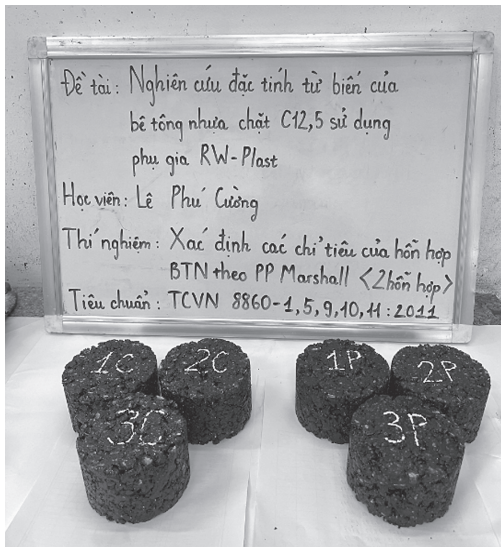 Đề tài: Nghiên cứu đặc tính từ biến của
bê tông nhựa chặt C12,5 sử dụng
phụ gia RW-Plast
Học viên: Lê Phú Cường
Thí nghiệm: Xác định các chỉ tiêu của hỗn hợp
BTN theo PP Marshall <2 hỗn hợp>
Tiêu chuẩn: TCVN 8860-1,5,9,10,11:2011
1C 2C 1P 2P
3C 3P